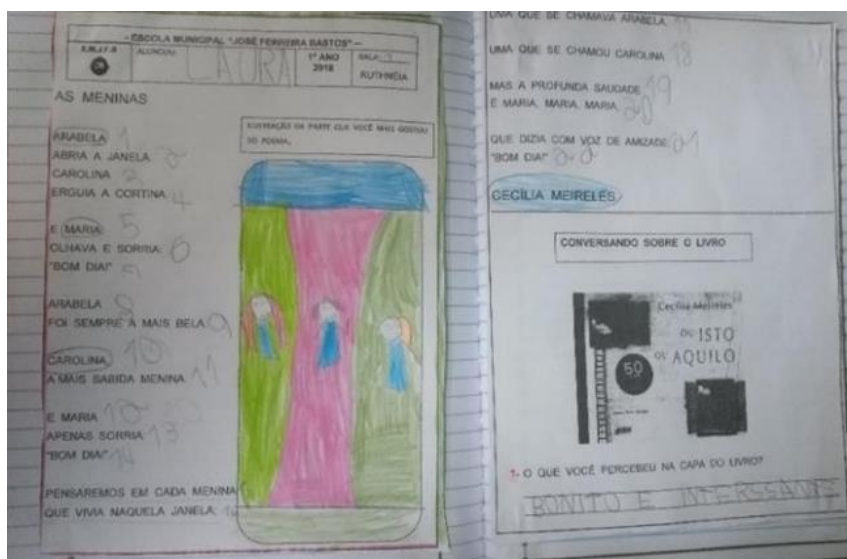 - ESCOLA MUNICIPAL "JOSÉ FERREIRA BASTOS" -
E.M.J.F.B
ALUNO(A): LAURA
1º ANO
2018
SALA:
RUTHNÉIA
AS MENINAS
ILUSTRAÇÃO DA PARTE QUE VOCÊ MAIS GOSTOU
DO POEMA.
ARABELA 1
ABRIA A JANELA. 2
CAROLINA 3
ERGUIA A CORTINA. 4
E MARIA 5
OLHAVA E SORRIA: 6
"BOM DIA!" 7
ARABELA 8
FOI SEMPRE A MAIS BELA. 9
CAROLINA, 10
A MAIS SABIDA MENINA. 11
E MARIA 12
APENAS SORRIA: 13
"BOM DIA!" 14
PENSAREMOS EM CADA MENINA
QUE VIVIA NAQUELA JANELA; 16
UMA QUE SE CHAMAVA ARABELA,
UMA QUE SE CHAMOU CAROLINA. 18
MAS A PROFUNDA SAUDADE 19
É MARIA, MARIA, MARIA, 20
QUE DIZIA COM VOZ DE AMIZADE: 21
"BOM DIA!" 22
CECÍLIA MEIRELES.
CONVERSANDO SOBRE O LIVRO
Cecília Meireles
OU ISTO
OU AQUILO
50
1- O QUE VOCÊ PERCEBEU NA CAPA DO LIVRO?
BONITO E INTERSSANTE